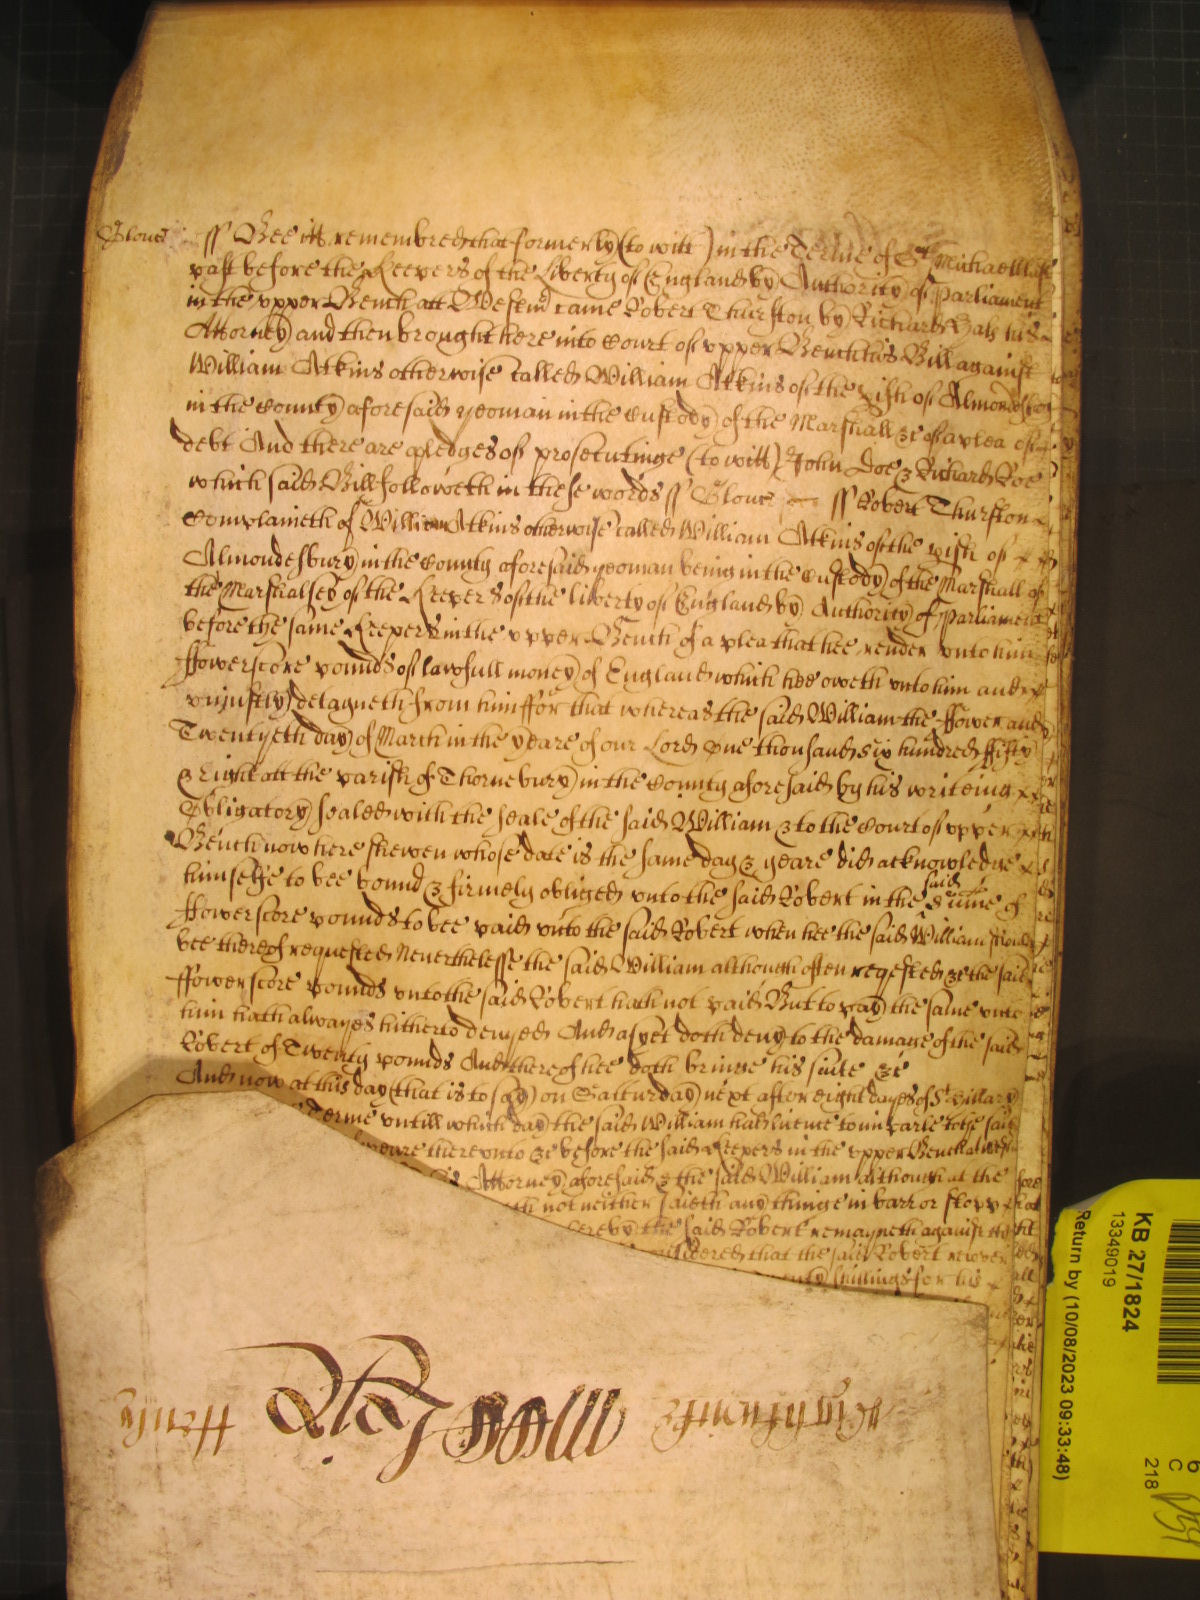 Glouc ss Bee itt remembred that formerly (to witt) in the Terme of St Michaell last
past before the Keepers of the Liberty of England by Authority of Parliament
in the vpper Bench att Westmr came Robert Thurston by Richard his
Attorney and then brought here into Court of vpper Bench his Bill against
William Atkins otherwise called William Atkins of the pish of Almondesbury
in the County aforesaid yeoman in the Custody of the Marshall &c of a plea of
debt And there are pledges of prosecutinge (to witt) John Doe & Richard Roe
which said Bill followeth in these words ss Glouc ss Robert Thurston
Complaineth of William Atkins otherwise called William Atkins of the pish of
Almondesbury in the County aforesaid yeoman being in the Custody of the Marshall of
the Marshalsey of the Keepers of the liberty of England by Authority of Parliament
before the same Keepers in the vpper Bench of a plea that hee render vnto him
ffowerscore pounds of lawfull money of England which hee oweth vnto him and
vniustly detayneth from him ffor that whereas the said William the ffower and
Twentyeth day of March in the yeare of our Lord One thousand six hundred ffifty
& Eight att the parish of Thornebury in the County aforesaid by his writeing
Obligatory sealed with the seale of the said William & to the Court of vpper
Bench now here shewen whose date is the same day & yeare did acknowledge
himselfe to bee bound & firmely obliged vnto the said Robert in the said Sume of
ffowerscore pounds to bee paid vnto the said Robert when hee the said William should
bee thereof requested Neverthelesse the said William although often reqested &c the said
ffowerscore pounds vnto the said Robert hath not paid But to pay the same vnto
him hath alwayes hitherto denyed And as yet doth deny to the damage of the said
Robert of Twenty pounds And thereof hee doth bringe his suite &c
And now at this day (that is to say) on Satturday next after eight dayes of St Hillary
Terme vntill which day the said William had licence to imparle to the said
there vnto &c before the said Keepers in the vpper Bench at Westmr
Attorney aforesaid & the said William although at the
not neither saieth any thinge in barr or stopp
by the said Robert remayneth against the
that the said Robert recover
shillings for his
Henly
KB 27/1824
13349019
Return by (10/08/2023 09:33:48)
6
C
218